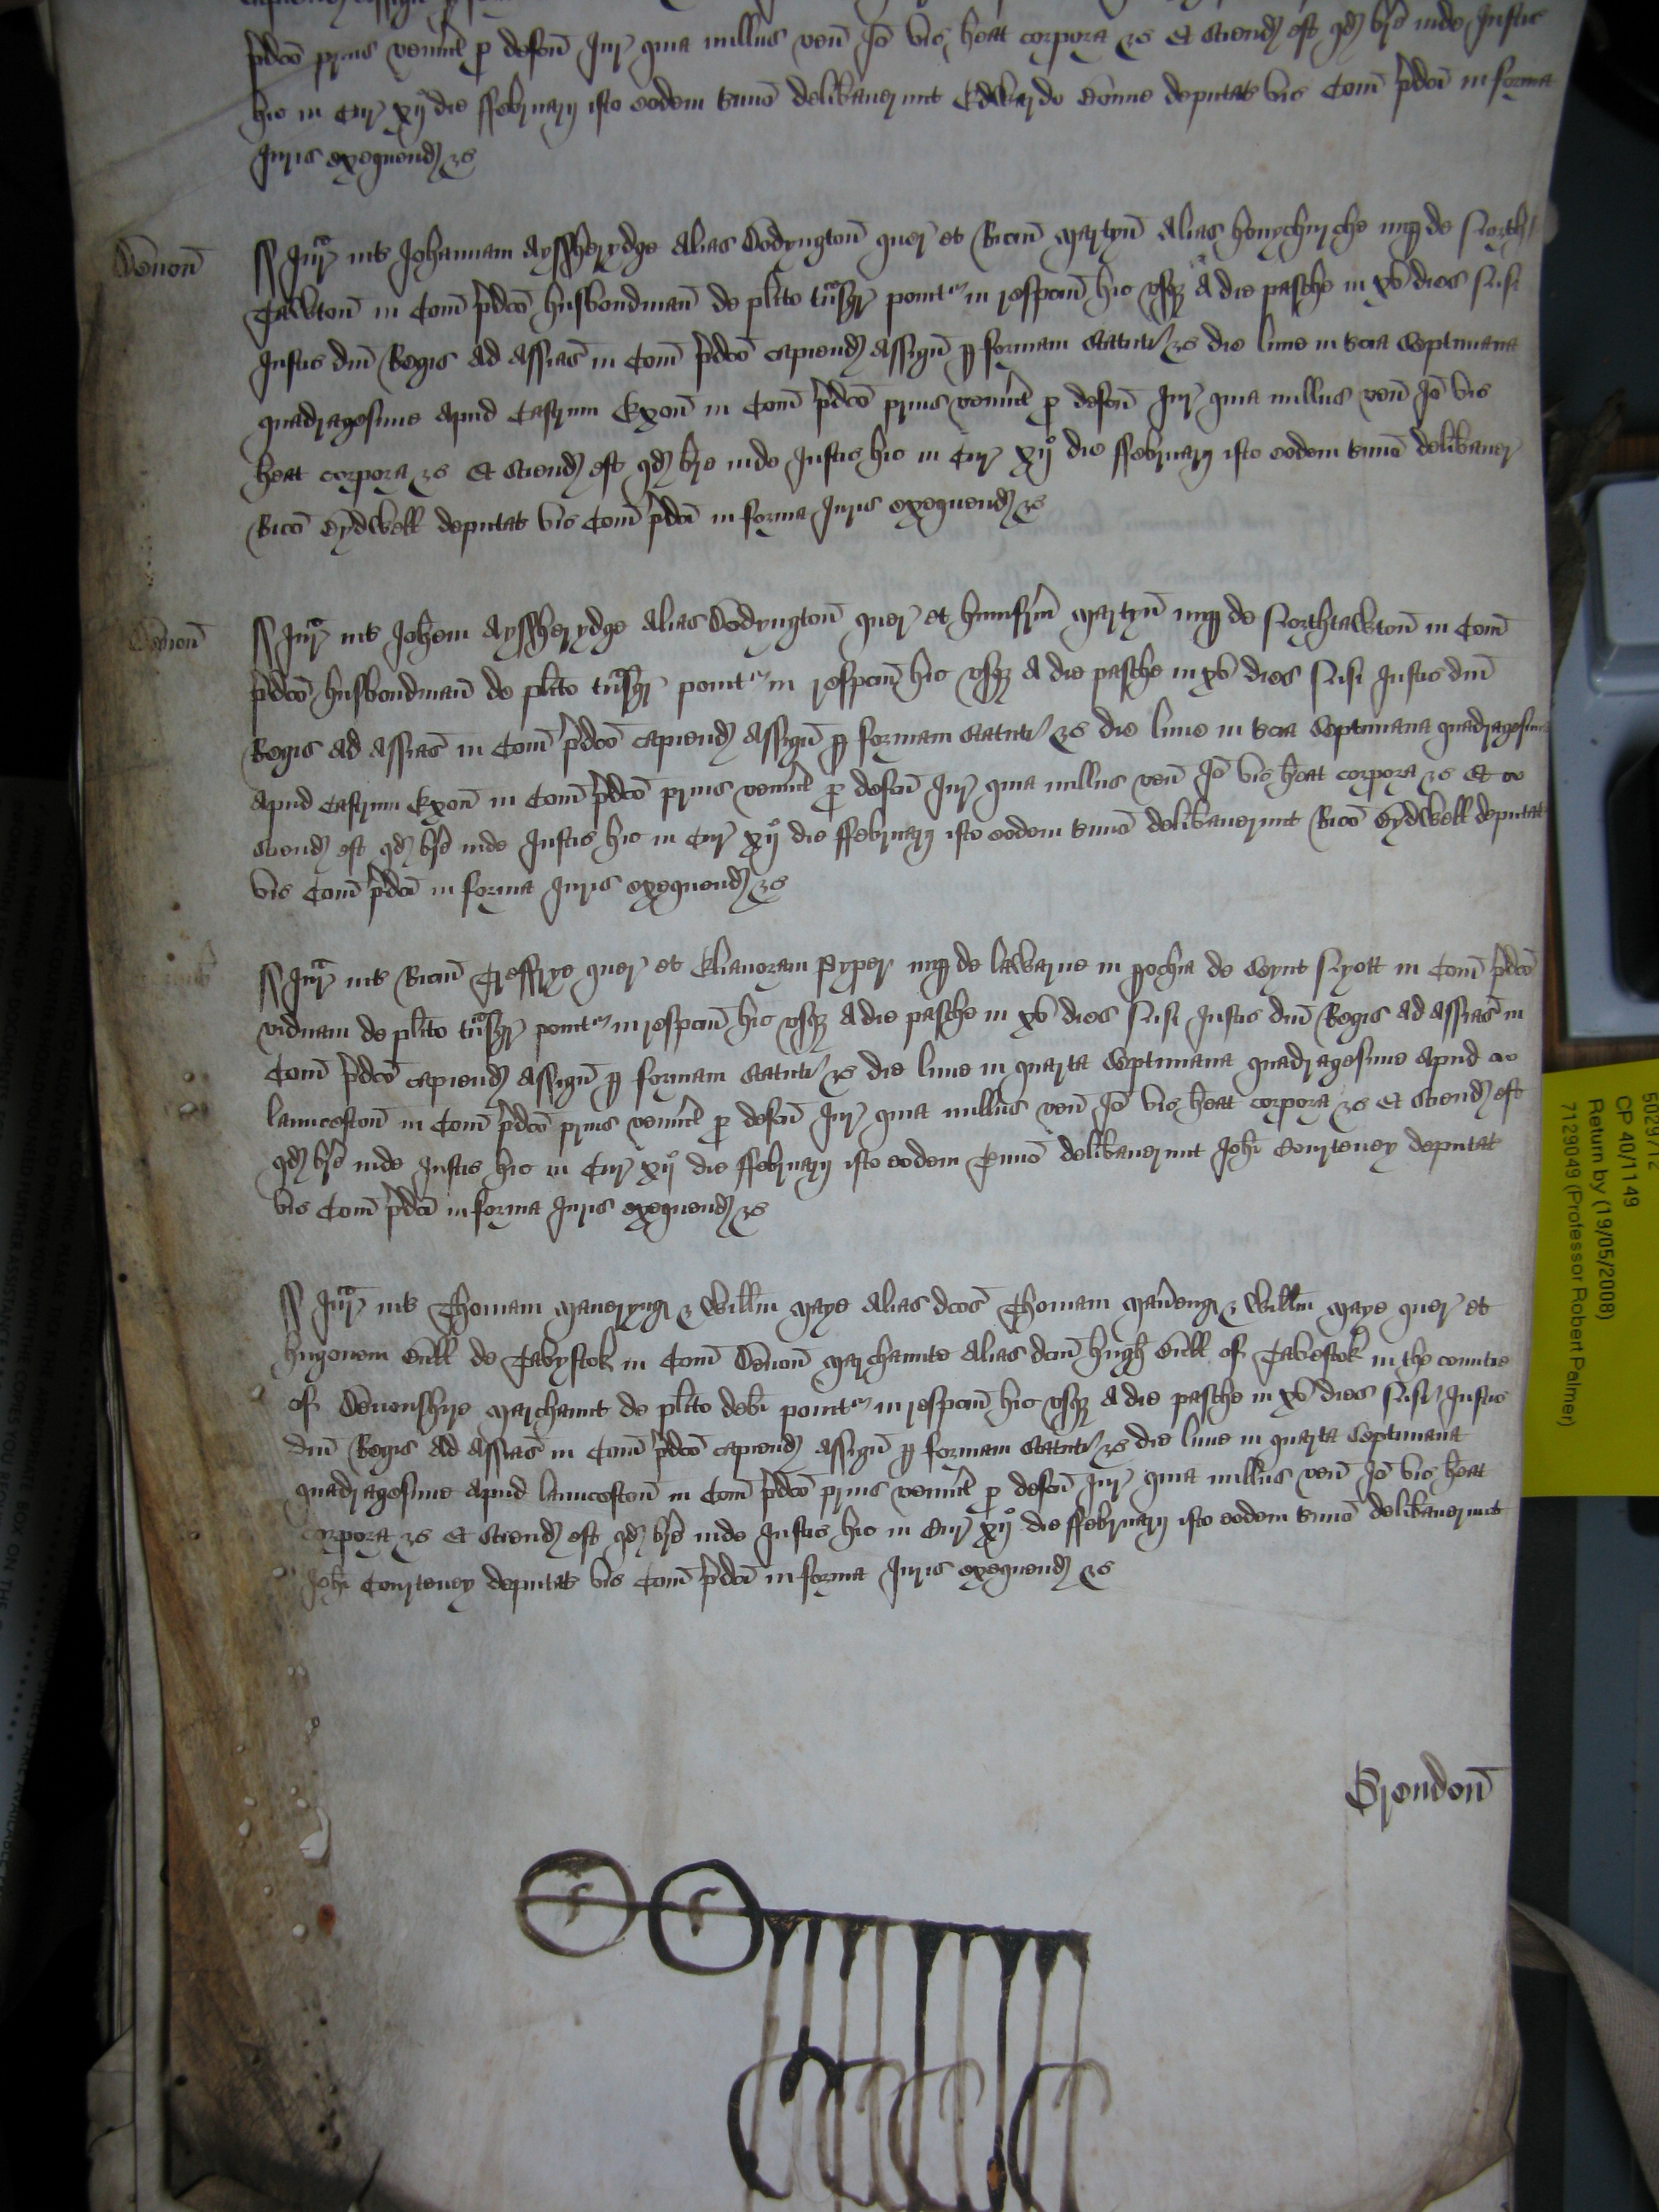 p̄dc̄o prius ven̄int p̄ defc̄u Jur̄ quia nullus ven̄ Jō vic̄ h̄eat corpora &c Et sciend est qd br̄e inde Justic̄
hic in Cur̄ xij die ffebruarij isto eodem t̄mino delib̄auerunt Edwardo deputat vic̄ Com̄ p̄dc̄i in forma
Juris exequend &c
Deuon̄
Jur̄ int̄ Johannam Aysherydge alias Dodyngton̄ quer̄ et Ric̄m Martyn̄ alias honychurche nup de North
Tawton̄ in Com̄ p̄dc̄o husbondman̄ de pl̄ito tn̄sgr̄ ponit̄ in respc̄um hic vsq a die pasche in xv dies Nisi
Justic̄ dn̄i Regis ad assīas in Com̄ p̄dc̄o capiend assign̄ p formam statuti &c die lune in t̄cia Septimana
quadragesime apud Castrum Exon̄ in Com̄ p̄dc̄o prius ven̄int p̄ defc̄u Jur̄ quia nullus ven̄ Jō vic̄
h̄eat corpora &c Et sciend est qd br̄e inde Justic̄ hic in Cur̄ xij° die ffebruarij isto eodem t̄mino delib̄auer̄
Ric̄o deputat vic̄ Com̄ p̄dc̄i in forma Juris exequend &c
Deuon̄
Jur̄ int̄ Joh̄em Aysherydge alias Dodyngton̄ quer̄ et humfrm̄ Martyn̄ nup de Northtawton̄ in Com̄
p̄dc̄o husbondman̄ de pl̄ito tn̄sgr̄ ponit̄ in respc̄um hic vsq a die pasche in xv dies Nisi Justic̄ dn̄i
Regis ad assīas in Com̄ p̄dc̄o capiend assign̄ p formam statuti &c die lune in t̄cia Septimana quadragesime
apud Castrum Exon̄ in Com̄ p̄dc̄o prius ven̄int p̄ defc̄u Jur̄ quia nullus ven̄ Jō vic̄ h̄eat corpora &c Et
sciend est qd br̄e inde Justic̄ hic in Cur̄ xij° die ffebruarij isto eodem t̄mino delib̄auerunt Ric̄o deputat
vic̄ Com̄ p̄dc̄i in forma Juris exequend &c
Jur̄ int̄ Ric̄m Treffrye quer̄ et Elianoram Pyper nup de lawarne in pochia de Seynt Nyott in Com̄ p̄dc̄o
viduam de pl̄ito tn̄sgr̄ ponit̄ in respc̄um hic vsq a die pasche in xv dies Nisi Justic̄ dn̄i Regis ad assīas in
Com̄ p̄dc̄o capiend assign̄ p formam statuti &c die lune in quarta Septimana quadragesime apud
launceston̄ in Com̄ p̄dc̄o prius ven̄int p̄ defc̄u Jur̄ quia nullus ven̄ Jō vic̄ h̄eat corpora &c Et sciend est
qd br̄e inde Justic̄ hic in Cur̄ xij° die ffebruarij isto eodem Termino delib̄auerunt Joh̄i Courteney deputat
vic̄ Com̄ p̄dc̄i in forma Juris exequend &c
Jur̄ int̄ Thomam & Will̄m Maye alias dc̄os Thomam & Will̄m Maye quer̄ et
hugonem de Tavystok in Com̄ Deuon̄ Marchaunte alias dc̄m hugh of Tavestok in the countie
of Devonshyre Marchaunt de pl̄ito deb̄i ponit̄ in respc̄um hic vsq a die pasche in xv dies Nisi Justic̄
dn̄i Regis ad assīas in Com̄ p̄dc̄o capiend assign̄ p formam statuti &c die lune in quarta Septimana
quadragesime apud launceston̄ in Com̄ p̄dc̄o prius ven̄int p̄ defc̄u Jur̄ quia nullus ven̄ Jō vic̄ h̄eat
corpora &c Et sciend est qd br̄e inde Justic̄ hic in Cur̄ xij° die ffebruarij isto eodem t̄mino delib̄auerunt
Joh̄i Courteney deputat vic̄ Com̄ p̄dc̄i in forma Juris exequend &c
Brendon̄
CP 40/1149
Return by (19/05/2008)
7129049 (Professor Robert Palmer)